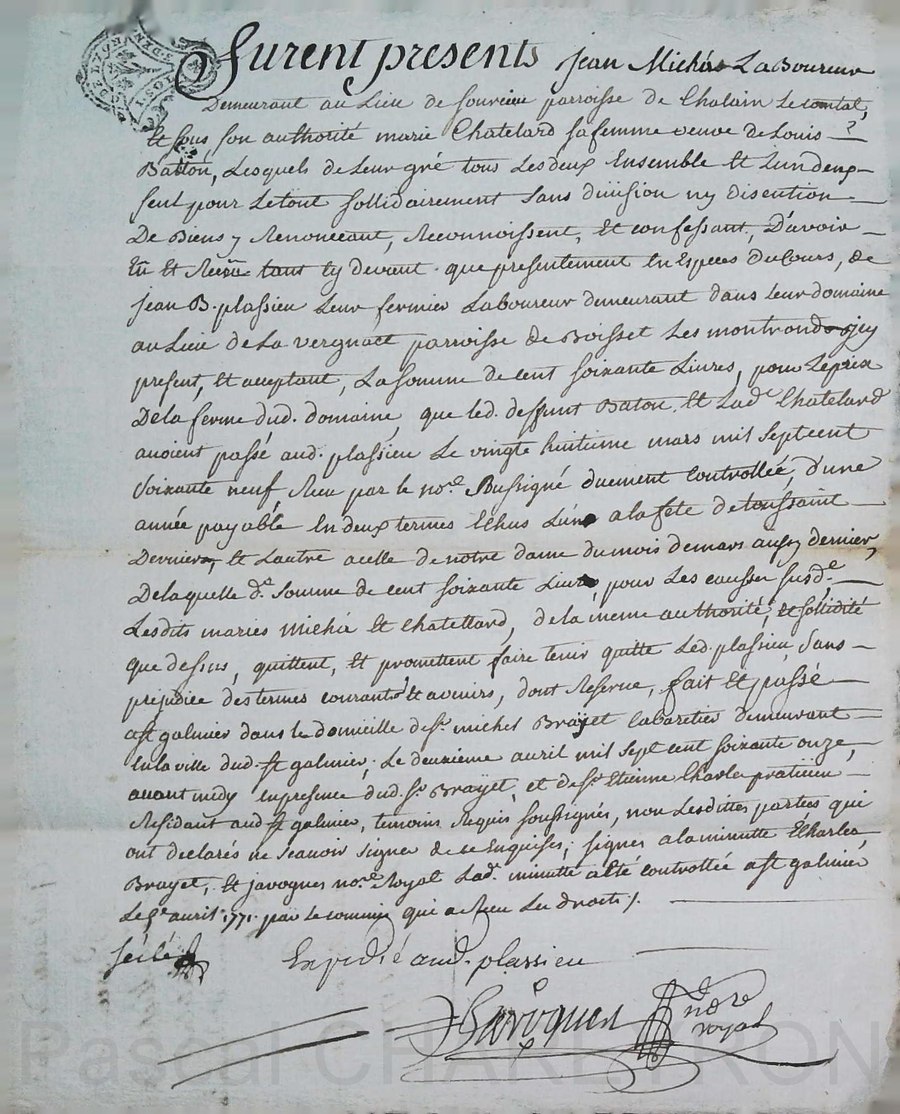 Furent presents Jean Michée Laboureur
Demeurant au Lieu de Souveine parroisse de Chalain Lecomtal,
Et sous son authorité marie Chatelard sa femme veuve de Louis
Batton, Lesquels de Leur gré tous Lesdeux Ensemble Et Lun deux
seul pour Letout sollidairement Sans division ny disention
De Biens y Renonceant, Reconnoissent, Et confessent, D'avoir
Eu Et Receu tant Cy devant que presentement En Especes Du Cours, de
jean B. plassieu Leur fermier Laboureur demeurant dans Leur domaine
au Lieu de La vergnatt parroisse de Boisset Les montrond icy
present, Et acceptant, La somme de Cent soixante Livres, pour Leprix
De la ferme dud. domaine, que led. deffunt Baton, Et Lade Chatelard
avoient passé aud. plassieu Le vingt huitieme mars mil septcent
soixante neuf, Receu par le nore. Bussigné duement Controllée, d'une
année payable En deux termes Echus Lun a la fête de toussaint
Derniere, Et Lautre acelle de notre dame du mois de mars aussy dernier,
De laquelle de. somme de Cent soixante Livres, pour Les causses susde.
Lesdits mariés Michée Et Chatellard, de la meme authorité, Et sollidité
que dessus, quittent, Et promettent faire tenir quitte Led. plassieu, Sans
prejudice des termes courants Et avenirs, dont Reserve, fait Et passé
a St galmier dans le domicille de Sr. michel Brayet Cabaretier demeurant
En la ville dud. St galmier, Le deuxieme avril mil sept cent soixante onze,
avant midy En presence dud. Sr. Brayet, et de Sr. Etienne Charles pratitien
Residant aud. St galmier, temoins Requis soussignés, non Lesdittes parties qui
ont declarés ne sçavoir signer de ce Enquises; signés a la minutte E Charles,
Brayet, Et javogues nore. Royal Lade. minutte a été controllée a St galmier
Le avril 1771. par Le commis qui a Receu Les droits /.
scellé
Expedié aud. plassieu
Javogues nore
royal
Pascal CHAREYRON